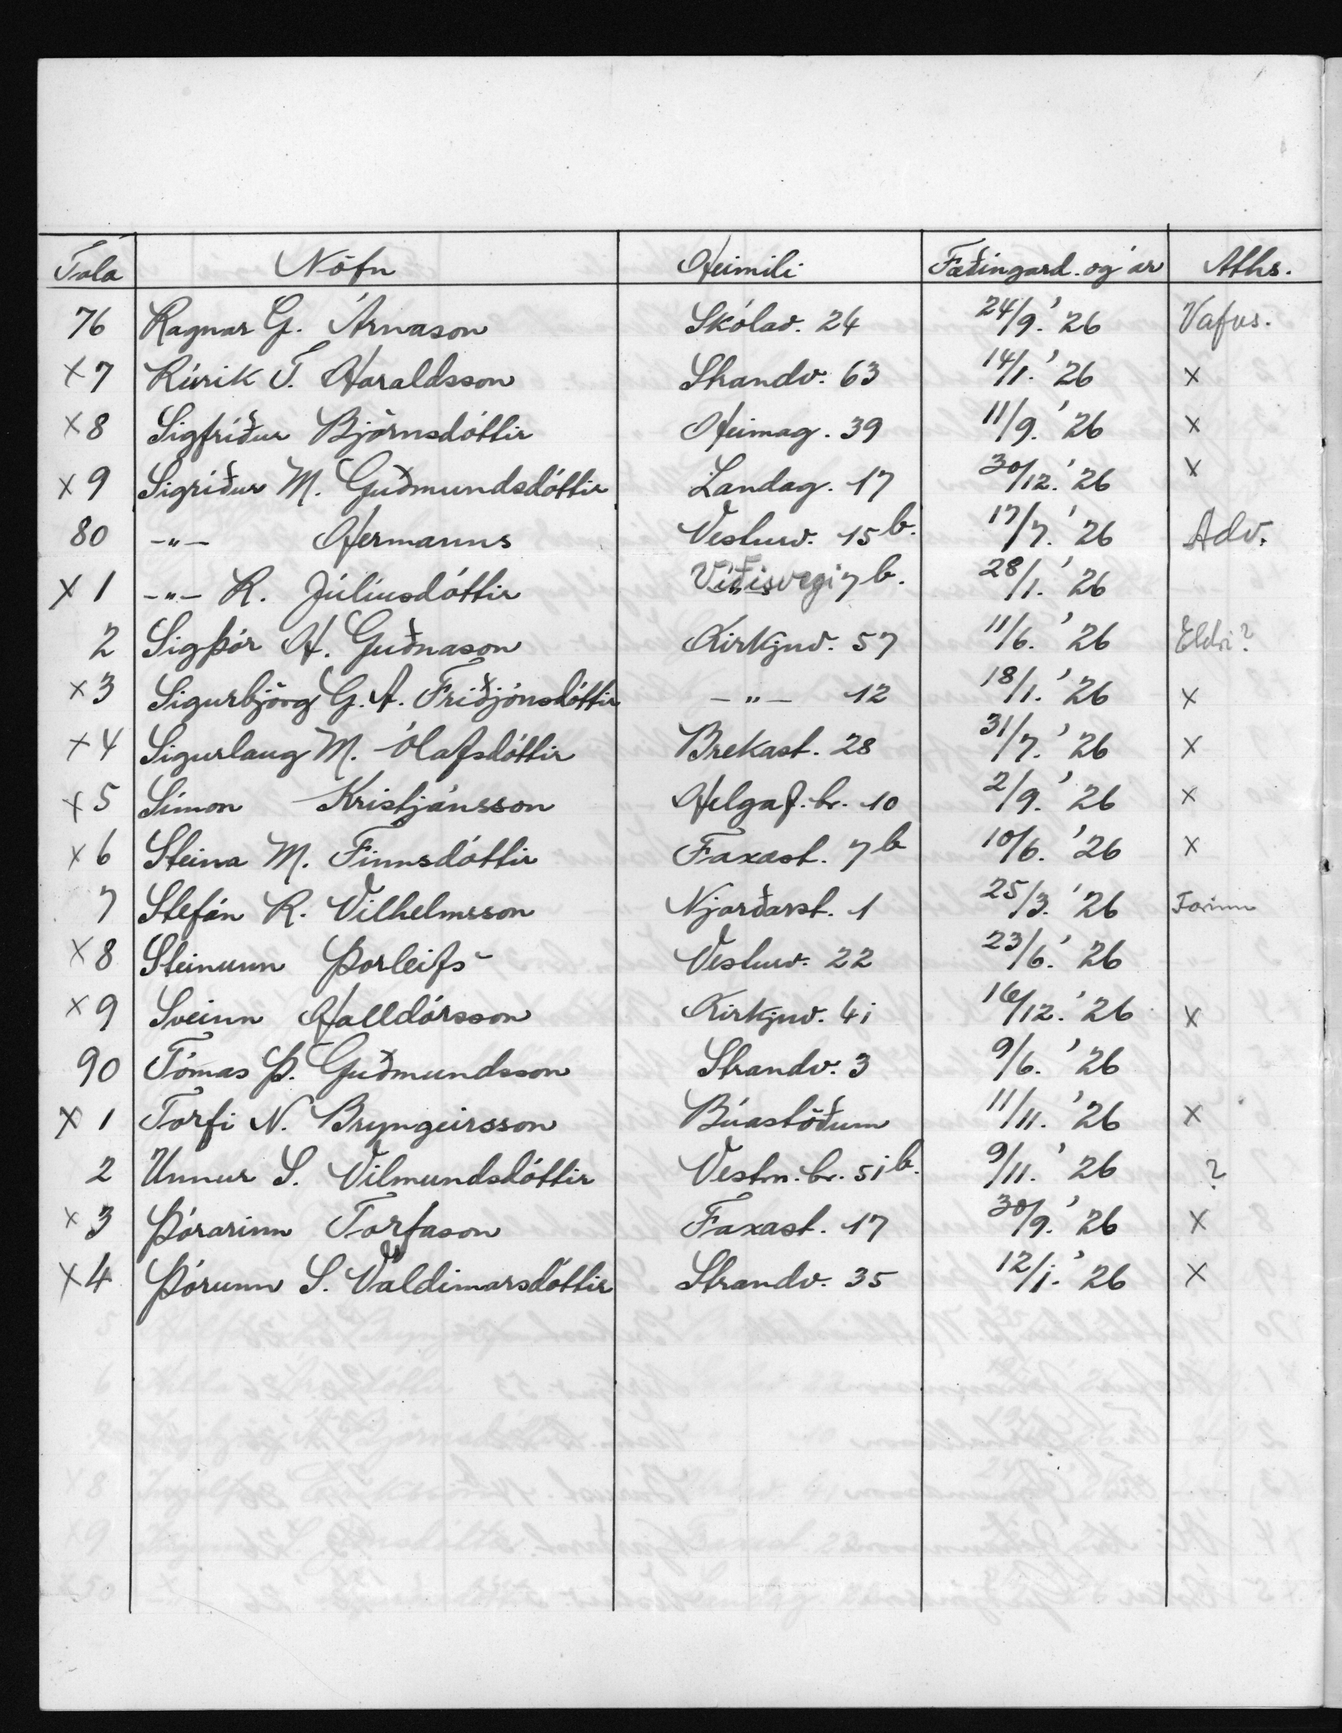 Tala Nöfn Heimili Fæðingard. og ár Aths.
76 Ragnar G. Árnason Skólav. 24 24/9.' 26 Vafas.
x 7 Rúrik T. Haraldsson Strandv. 63 14/1.' 26 x
x 8 Sigfríður Björnsdóttir Heimag. 39 11/9.' 26 x
x 9 Sigríður M. Guðmundsdóttir Landag. 17 30/12.' 26 x
80 -"- Hermanns Vesturv. 15 b. 17/7.' 26 Adv.
x 1 -"- R. Júlíusdóttir Víðisvegi 7 b. 28/1.' 26
2 Sigþór H. Guðnason Kirkjuv. 57 11/6.' 26 Eldri?
x 3 Sigurbjörg G. A. Friðjónsdóttir -"- 12 18/1.' 26 x
x 4 Sigurlaug M. Ólafsdóttir Brekast. 28 31/7.' 26 x
x 5 Símon Kristjánsson Helgaf.br. 10 2/9.' 26 x
x 6 Steina M. Finnsdóttir Faxast. 7 b 10/6.' 26 x
7 Stefán R. Vilhelmsson Njarðarst. 1 25/3.' 26 Farinn
x 8 Steinunn Þorleifs- Vesturv. 22 23/6.' 26
x 9 Sveinn Halldórsson Kirkjuv. 41 16/12.' 26 x
90 Tómas Þ. Guðmundsson Strandv. 3 9/6.' 26
x 1 Torfi N. Bryngeirsson Búastöðum 11/11.' 26 x
2 Unnur S. Vilmundsdóttir Vestm.br. 51 b. 9/11.' 26 ?
x 3 Þórarinn Torfason Faxast. 17 30/9.' 26 x
x 4 Þórunn S. Valdimarsdóttir Strandv. 35 12/1.' 26 x